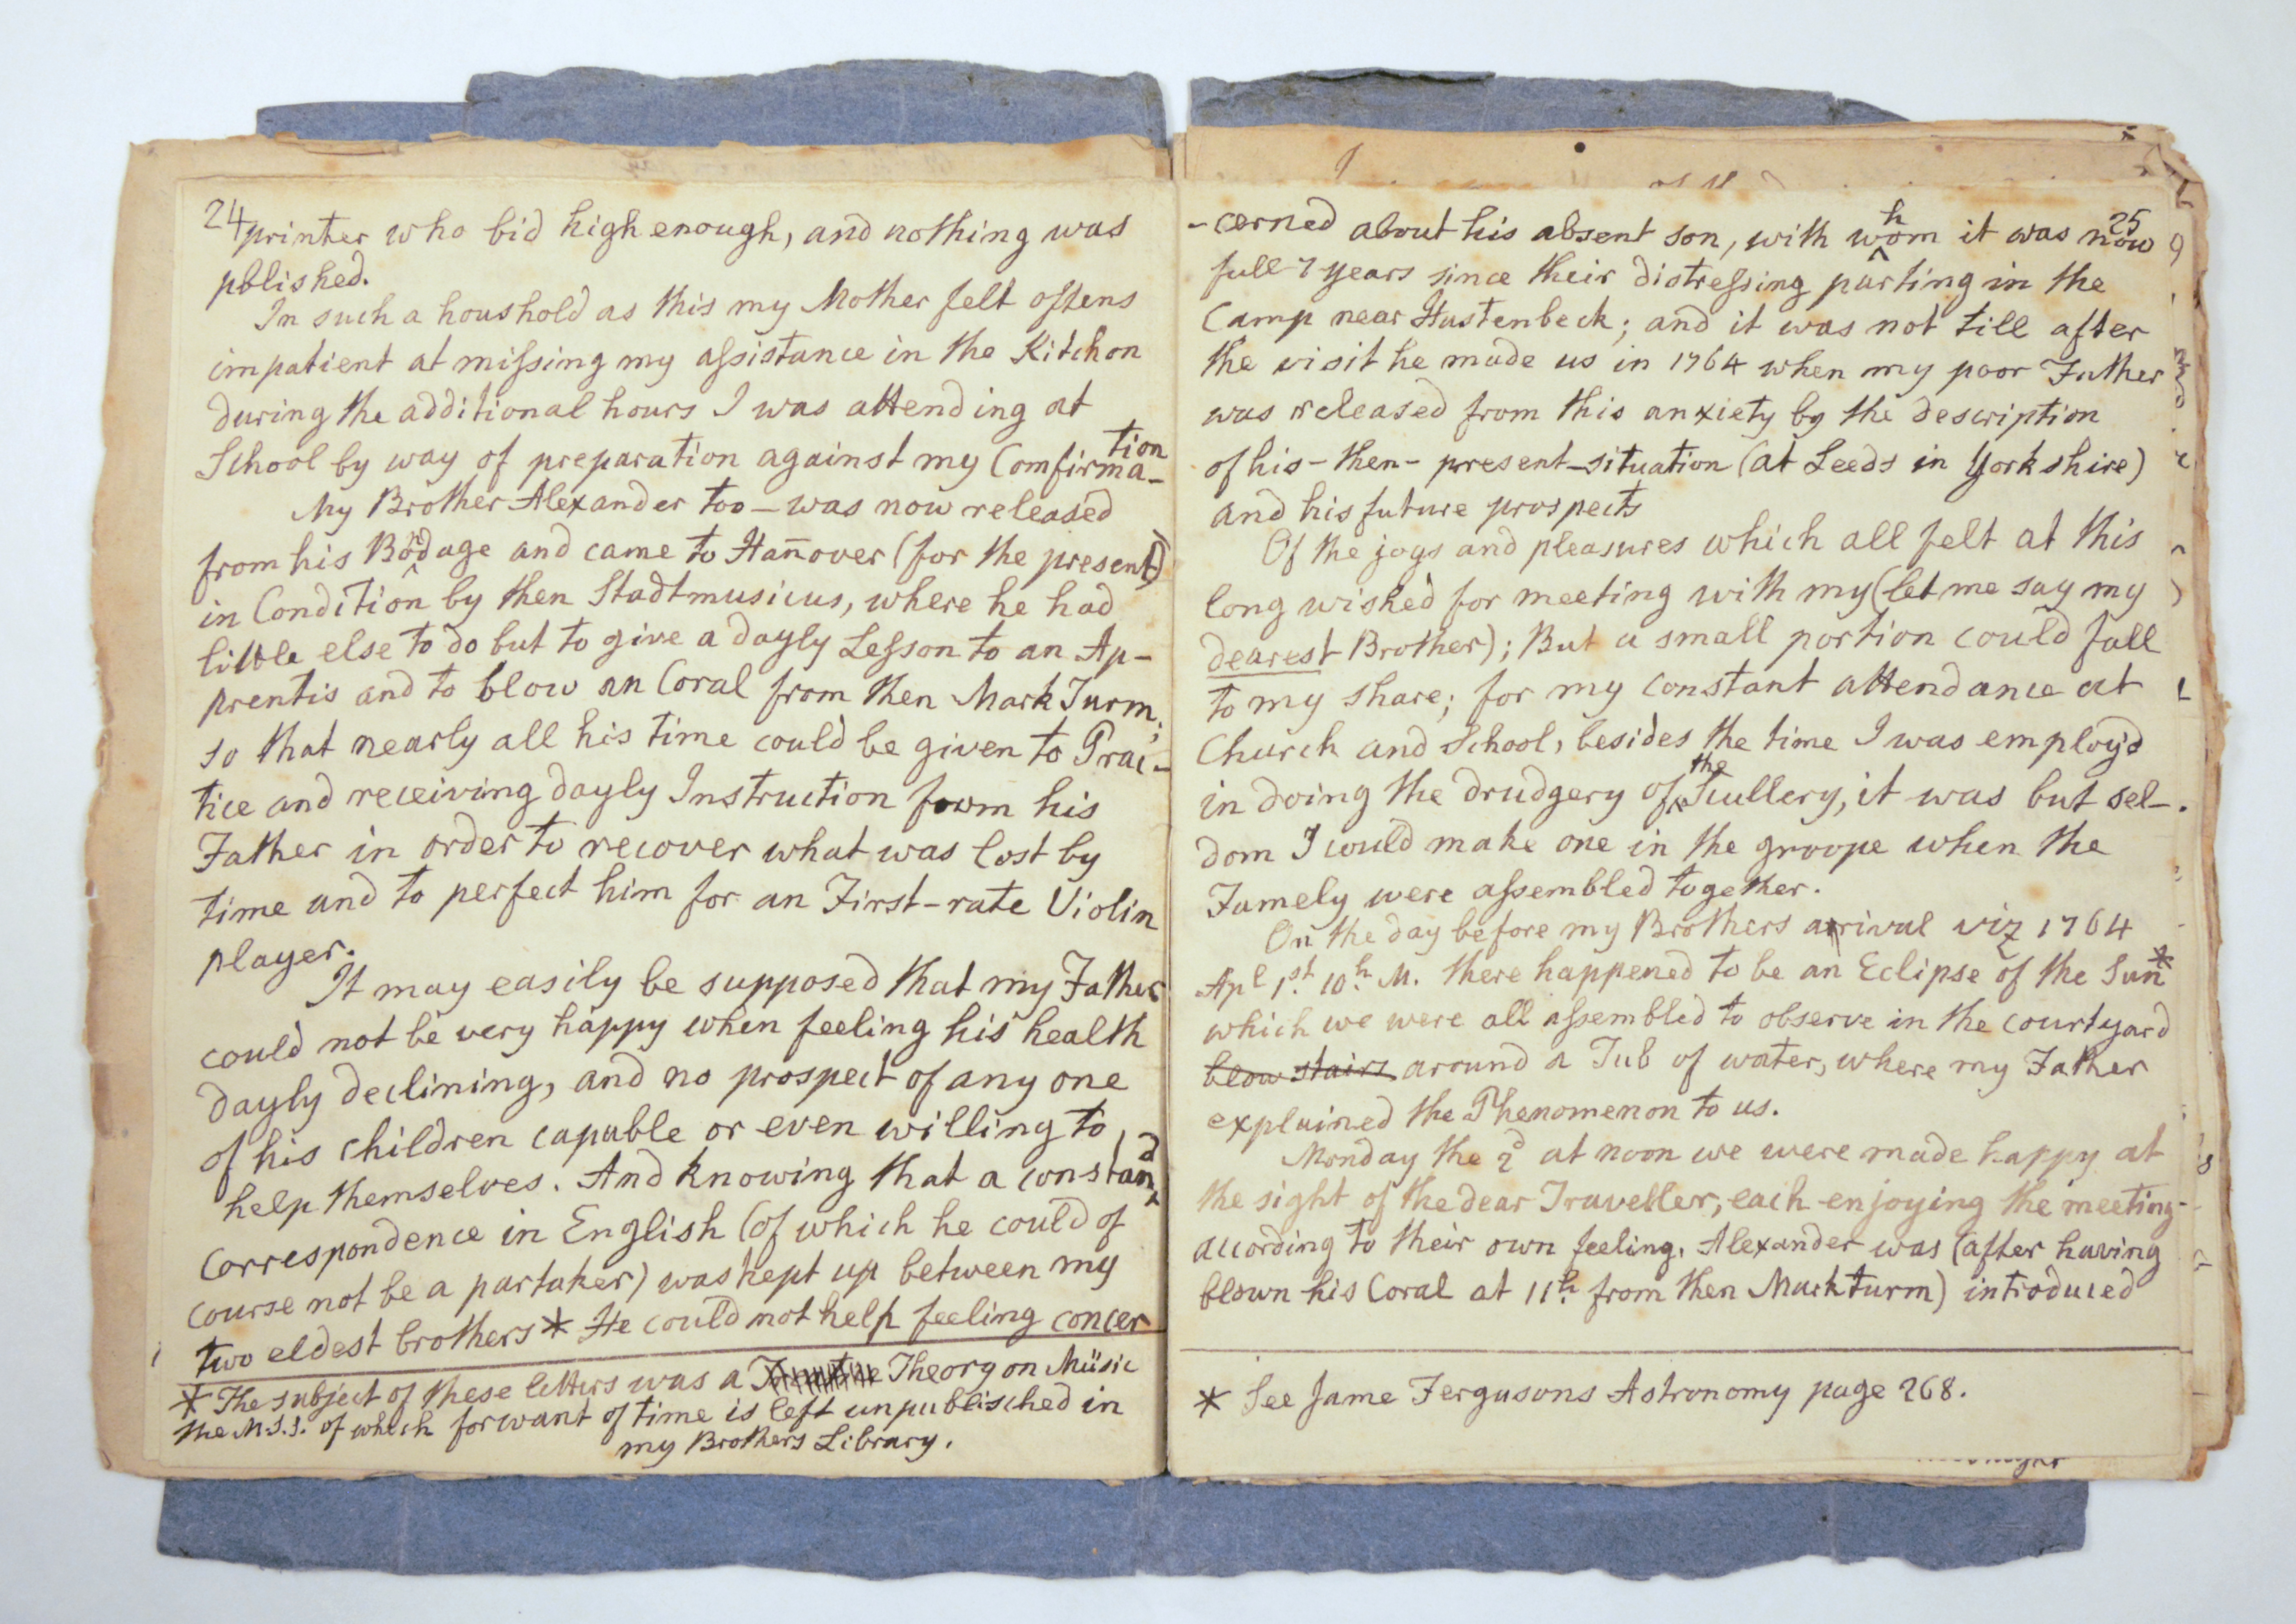 24
printer who bid high enough, and nothing was
pblished.
In such a houshold as this my Mother felt oftens
impatient at missing my assistance in the Kitchon
during the additional hours I was attending at
School by way of preparation against my Comfirma-tion
My Brother Alexander too – was now released
from his Bondage and came to Han̄over (for the present)
in Condition by then Stadtmusicus, where he had
little else to do but to give a dayly Lesson to an Ap-
prentis and to blow an Coral from then Mark Turm;
so that nearly all his time could be given to Prac-
tice and receiving dayly Instruction from his
Father in order to recover what was lost by
time and to perfect him for an First-rate Violin
player.
It may easily be supposed that my Father
could not be very happy when feeling his health
dayly declining, and no prospect of any one
of his children capable or even willing to
help themselves. And knowing that a constand
correspondence in English (of which he could of
course not be a partaker) was kept up between my
two eldest brothers * He could not help feeling concer
* The subject of these letters was a Theory on Müsic
the M.S.S. of which for want of time is left unpublisched in
my Brothers Library.
25
-cerned about his absent son, with whom it was now
full 7 years since their distressing parting in the
Camp near Hastenbeck; and it was not till after
the visit he made us in 1764 when my poor Father
was released from this anxiety by the description
of his – then – present – situation (at Leeds in Yorkshire)
and his future prospects
Of the joys and pleasures which all felt at this
long wished for meeting with my (let me say my
dearest Brother); But a small portion could fall
to my share; for my constant attendance at
Church and School, besides the time I was employd
in doing the drudgery of the Scullery, it was but sel-
dom I could make one in the groope when the
Famely were assembled together.
On the day before my Brothers arrival viz 1764
Apl 1st. 10h. M. there happened to be an Eclipse of the Sun *
which we were all assembled to observe in the courtyard
blow stairs around a Tub of water, where my Father
explained the Phenomenon to us.
Monday the 2d at noon we were made happy at
the sight of the dear Traveller, each enjoying the meeting
according to their own feeling. Alexander was (after having
blown his Coral at 11h. from then Markturm) introduced
* See Jame Fergusons Astronomy page 268.